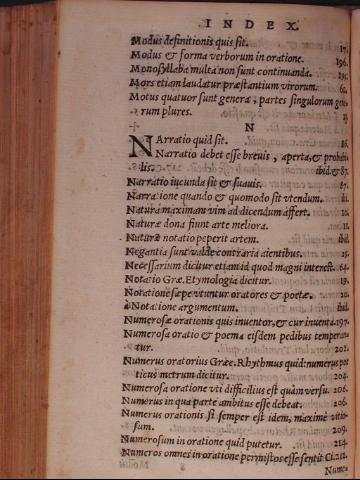 INDEX.
Modus definitionis quis sit. 17.
Modus & forma verborum in oratione. 196.
Monosyllaba multa non sunt continuanda. 195.
Mors etiam laudatur præstantium virorum. 62.
Motus quatuor sunt genera, partes singulorum gene
rum plures.
N
NArratio quid sit. 86.
Narratio debet esse breuis, aperta, & probabi
lis. ibid. & 87.
Narratio iucunda sit & suauis. 87.
Narratione quando & quomodo sit vtendum. ibi.
Natura maximam vim ad dicendum affert. 10.
Naturæ dona fiunt arte meliora. 11.
Naturæ notatio peperit artem. ibid.
Negantia sunt valde contraria aientibus. 25.
Necessarium dicitur etiam id quod magni interest. 64.
Notatio Græ. Etymologia dicitur. 19.
Notatione sæpe vtuntur oratores & poetæ. 20.
Notatione argumentum. ibid.
Numerosæ orationis quis inuentor, & cur inuenta. 197.
Numerosa oratio & poema eisdem pedibus tempera
tur. 202.
Numerus oratorius Græce. Rhythmus quid: numerus poe
ticus metrum dicitur. 204.
Numerosa oratione vti difficilius est quàm versu. 206.
Numerus in qua parte ambitus esse debeat. 206.
Numerus orationis si semper est idem, maximè vitio-
sum. 209.
Numerosum in oratione quid putetur. 214.
Numeros omnes in oratione permistos esse sentit Ci. 212.
Nume